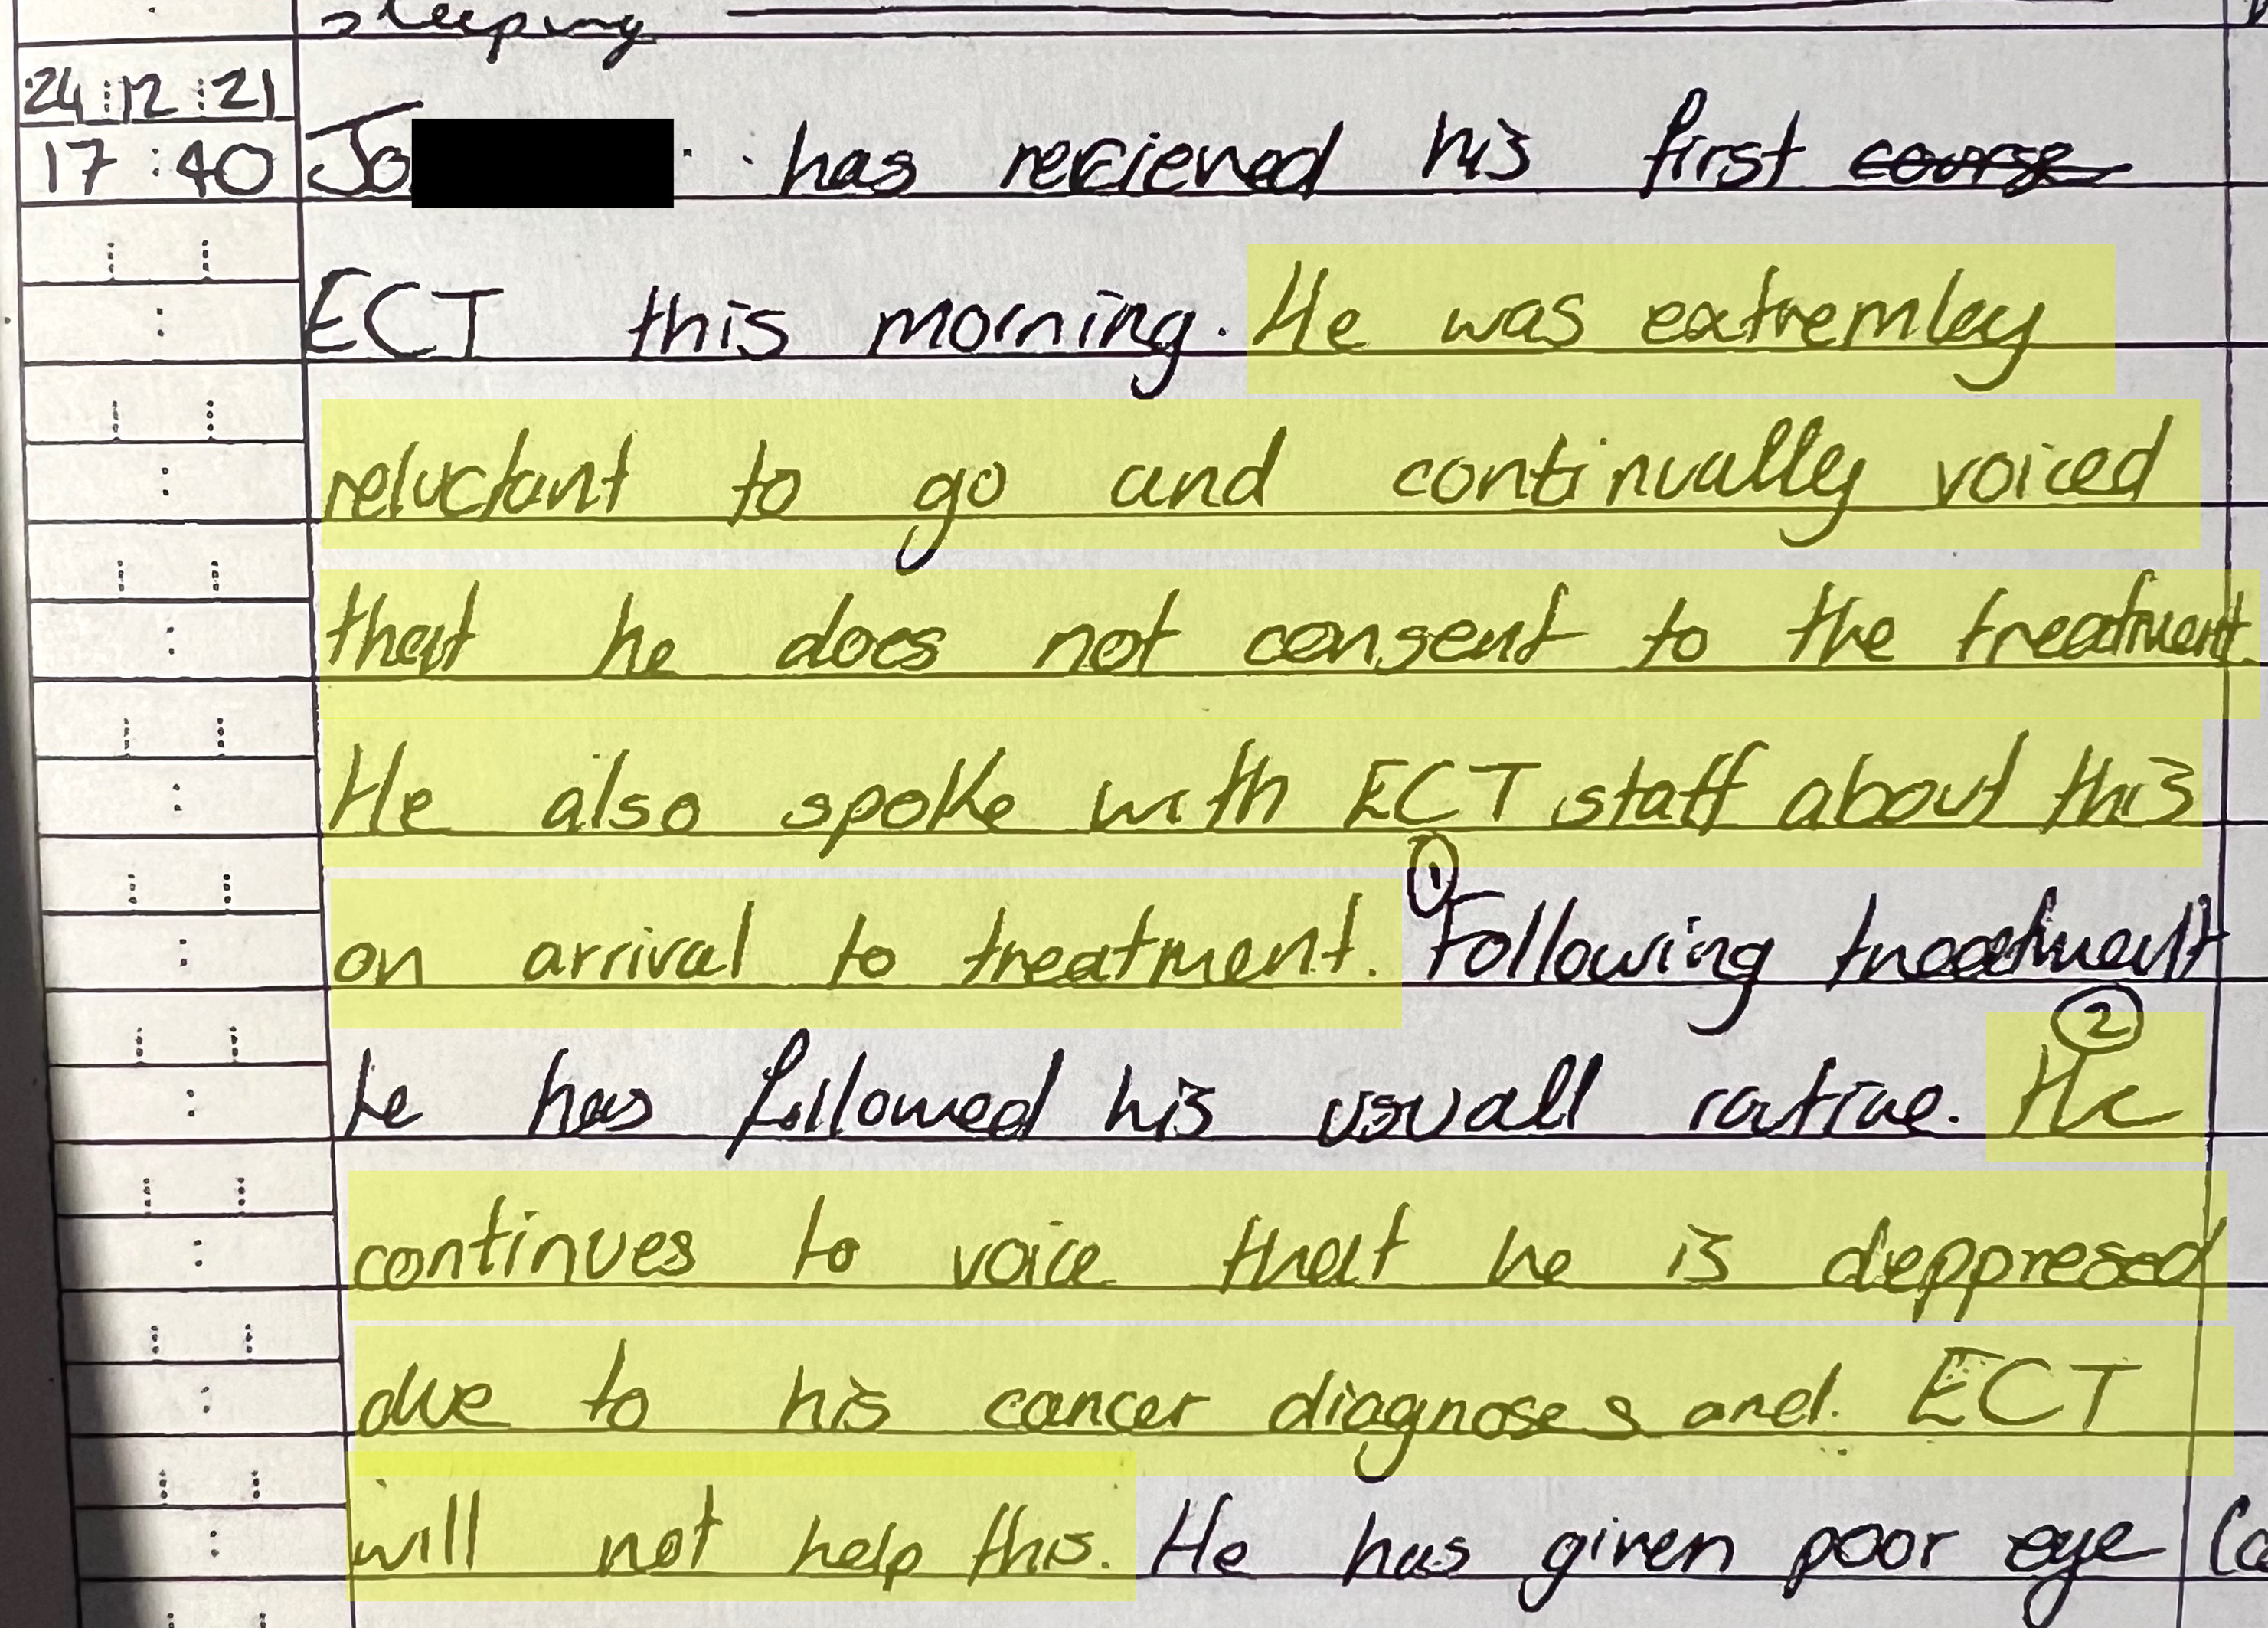 sleeping
24:12:21
17:40 Jo has recieved his first course
ECT this morning. He was extremley
reluctant to go and continually voiced
that he does not consent to the treatment
He also spoke with ECT staff about this
①
on arrival to treatment. Following treatment
②
he has followed his usuall routine. He
continues to voice that he is deppresed
due to his cancer diagnoses and. ECT
will not help this. He has given poor eye